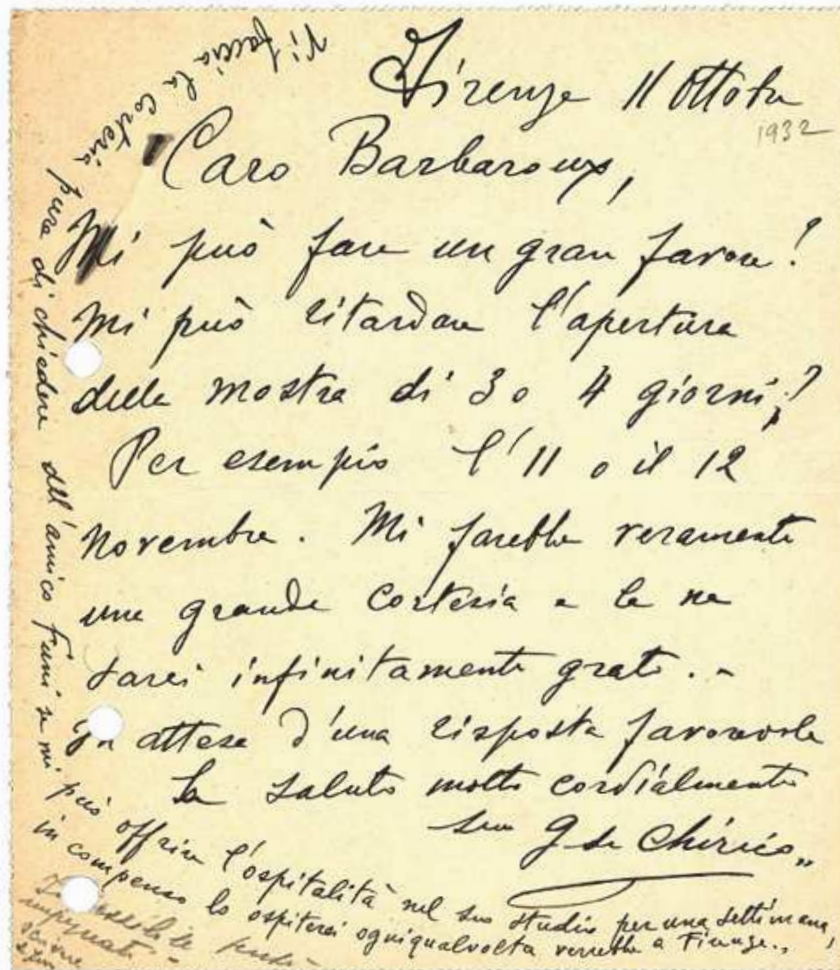 Firenze 11 Ottobre
1932
Caro Barbaroux,
Mi può fare un gran favore!
Mi può ritardare l'apertura
della mostra di 3 o 4 giorni;?
Per esempio l'11 o il 12
novembre. Mi farebbe veramente
una grande cortesia e le ne
sarei infinitamente grato. -
In attesa d'una risposta favorevole
La saluto molto cordialmente
suo G de Chirico
Mi faccia la cortesia
pure di chiedere all'amico Funi se mi può offrire l'ospitalità nel suo studio per una settimana,
in compenso lo ospiterei ogniqualvolta verrebbe a Firenze.